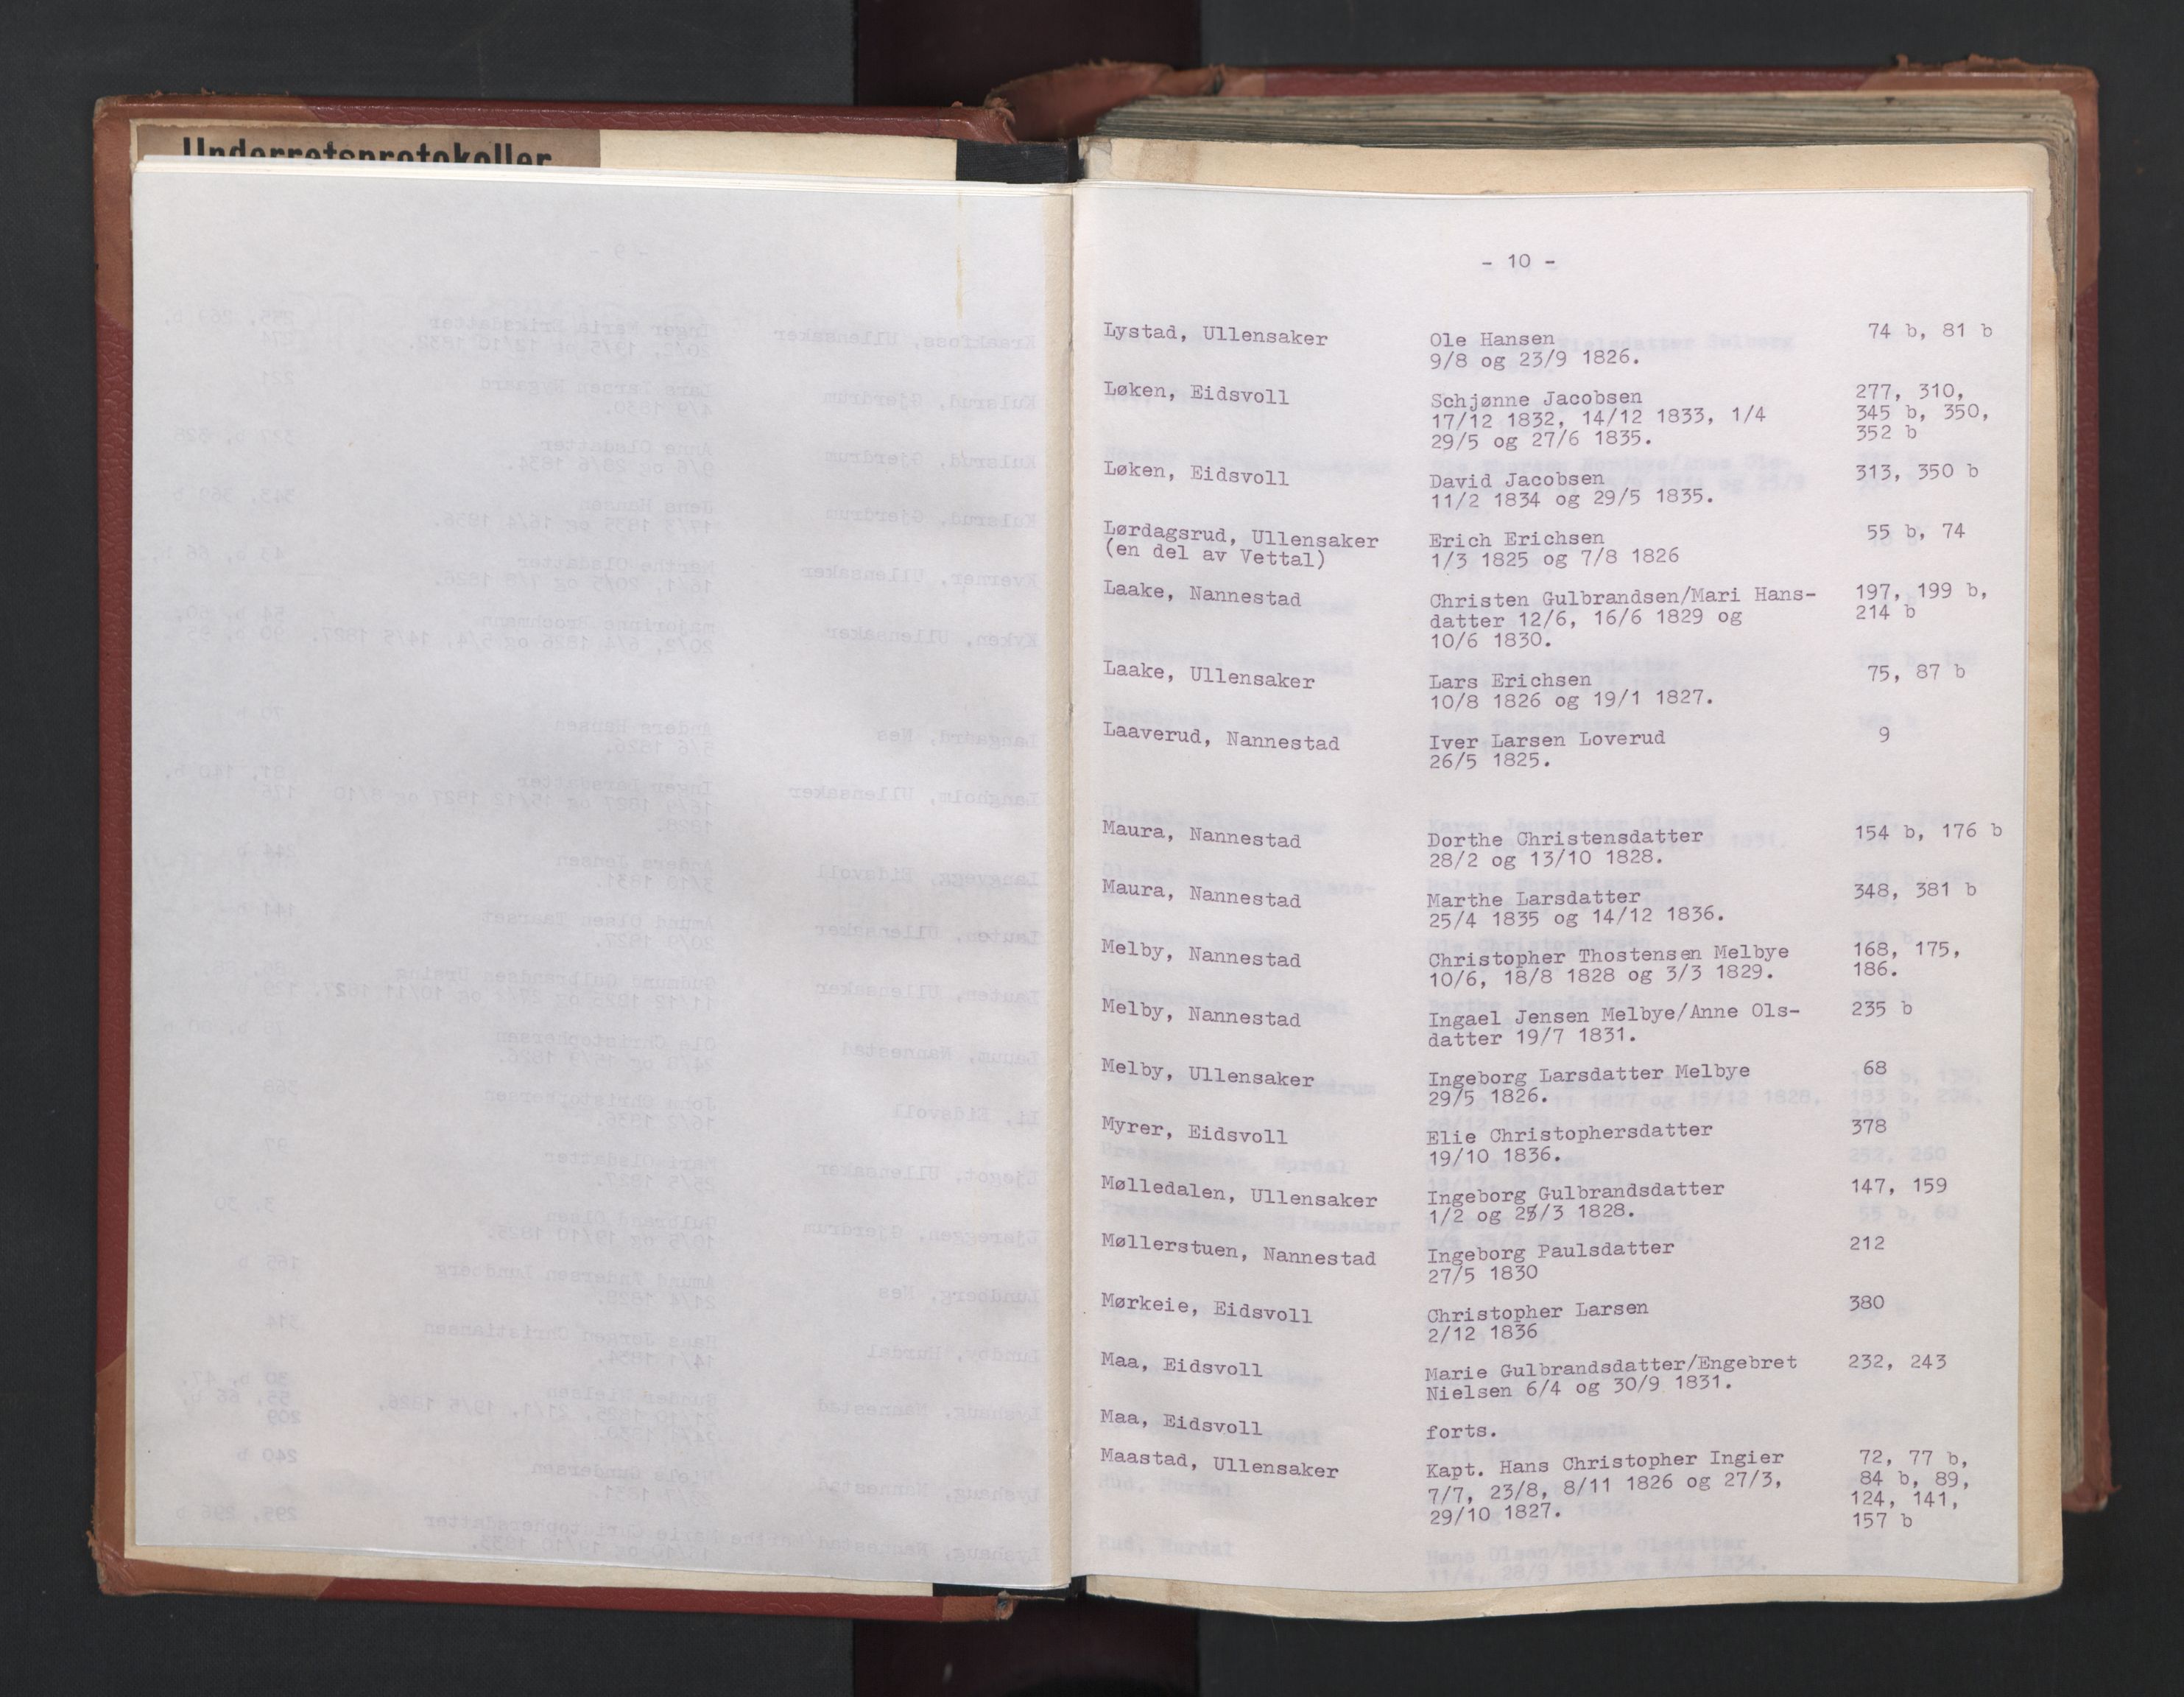 Underretsprotokoller
- 10 -
Lystad, Ullensaker Ole Hansen 74 b, 81 b
9/8 og 23/9 1826.
Løken, Eidsvoll Schjønne Jacobsen 277, 310,
17/12 1832, 14/12 1833, 1/4 345 b, 350,
29/5 og 27/6 1835. 352 b
Løken, Eidsvoll David Jacobsen 313, 350 b
11/2 1834 og 29/5 1835.
Lørdagsrud, Ullensaker Erich Erichsen 55 b, 74
(en del av Vettal) 1/3 1825 og 7/8 1826
Laake, Nannestad Christen Gulbrandsen/Mari Hans- 197, 199 b,
datter 12/6, 16/6 1829 og 214 b
10/6 1830.
Laake, Ullensaker Lars Erichsen 75, 87 b
10/8 1826 og 19/1 1827.
Laaverud, Nannestad Iver Larsen Loverud 9
26/5 1825.
Maura, Nannestad Dorthe Christensdatter 154 b, 176 b
28/2 og 13/10 1828.
Maura, Nannestad Marthe Larsdatter 348, 381 b
25/4 1835 og 14/12 1836.
Melby, Nannestad Christopher Thostensen Melbye 168, 175,
10/6, 18/8 1828 og 3/3 1829. 186.
Melby, Nannestad Ingael Jensen Melbye/Anne Ols- 235 b
datter 19/7 1831.
Melby, Ullensaker Ingeborg Larsdatter Melbye 68
29/5 1826.
Myrer, Eidsvoll Elie Christophersdatter 378
19/10 1836.
Mølledalen, Ullensaker Ingeborg Gulbrandsdatter 147, 159
1/2 og /3 1828.
Møllerstuen, Nannestad Ingeborg Paulsdatter 212
27/5 1830
Mørkeie, Eidsvoll Christopher Larsen 380
2/12 1836
Maa, Eidsvoll Marie Gulbrandsdatter/Engebret 232, 243
Nielsen 6/4 og 30/9 1831.
Maa, Eidsvoll forts.
Maastad, Ullensaker Kapt. Hans Christopher Ingier 72, 77 b,
7/7, 23/8, 8/11 1826 og 27/3, 84 b, 89,
29/10 1827. 124, 141,
157 b